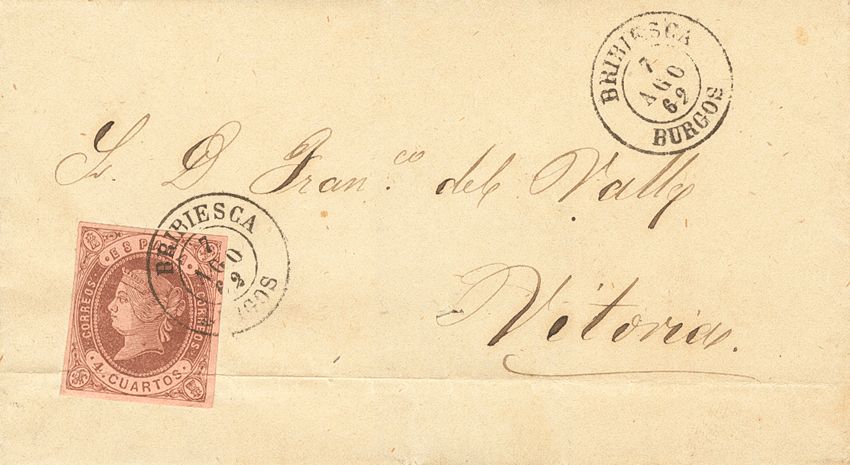 BRIBIESCA
7
AGO
62
BURGOS
Sr. D Fran.co del Valle
Vitoria.
BRIBIESCA
7
AGO
62
BURGOS
ESPAÑA
CORREOS
CORREOS
4 CUARTOS